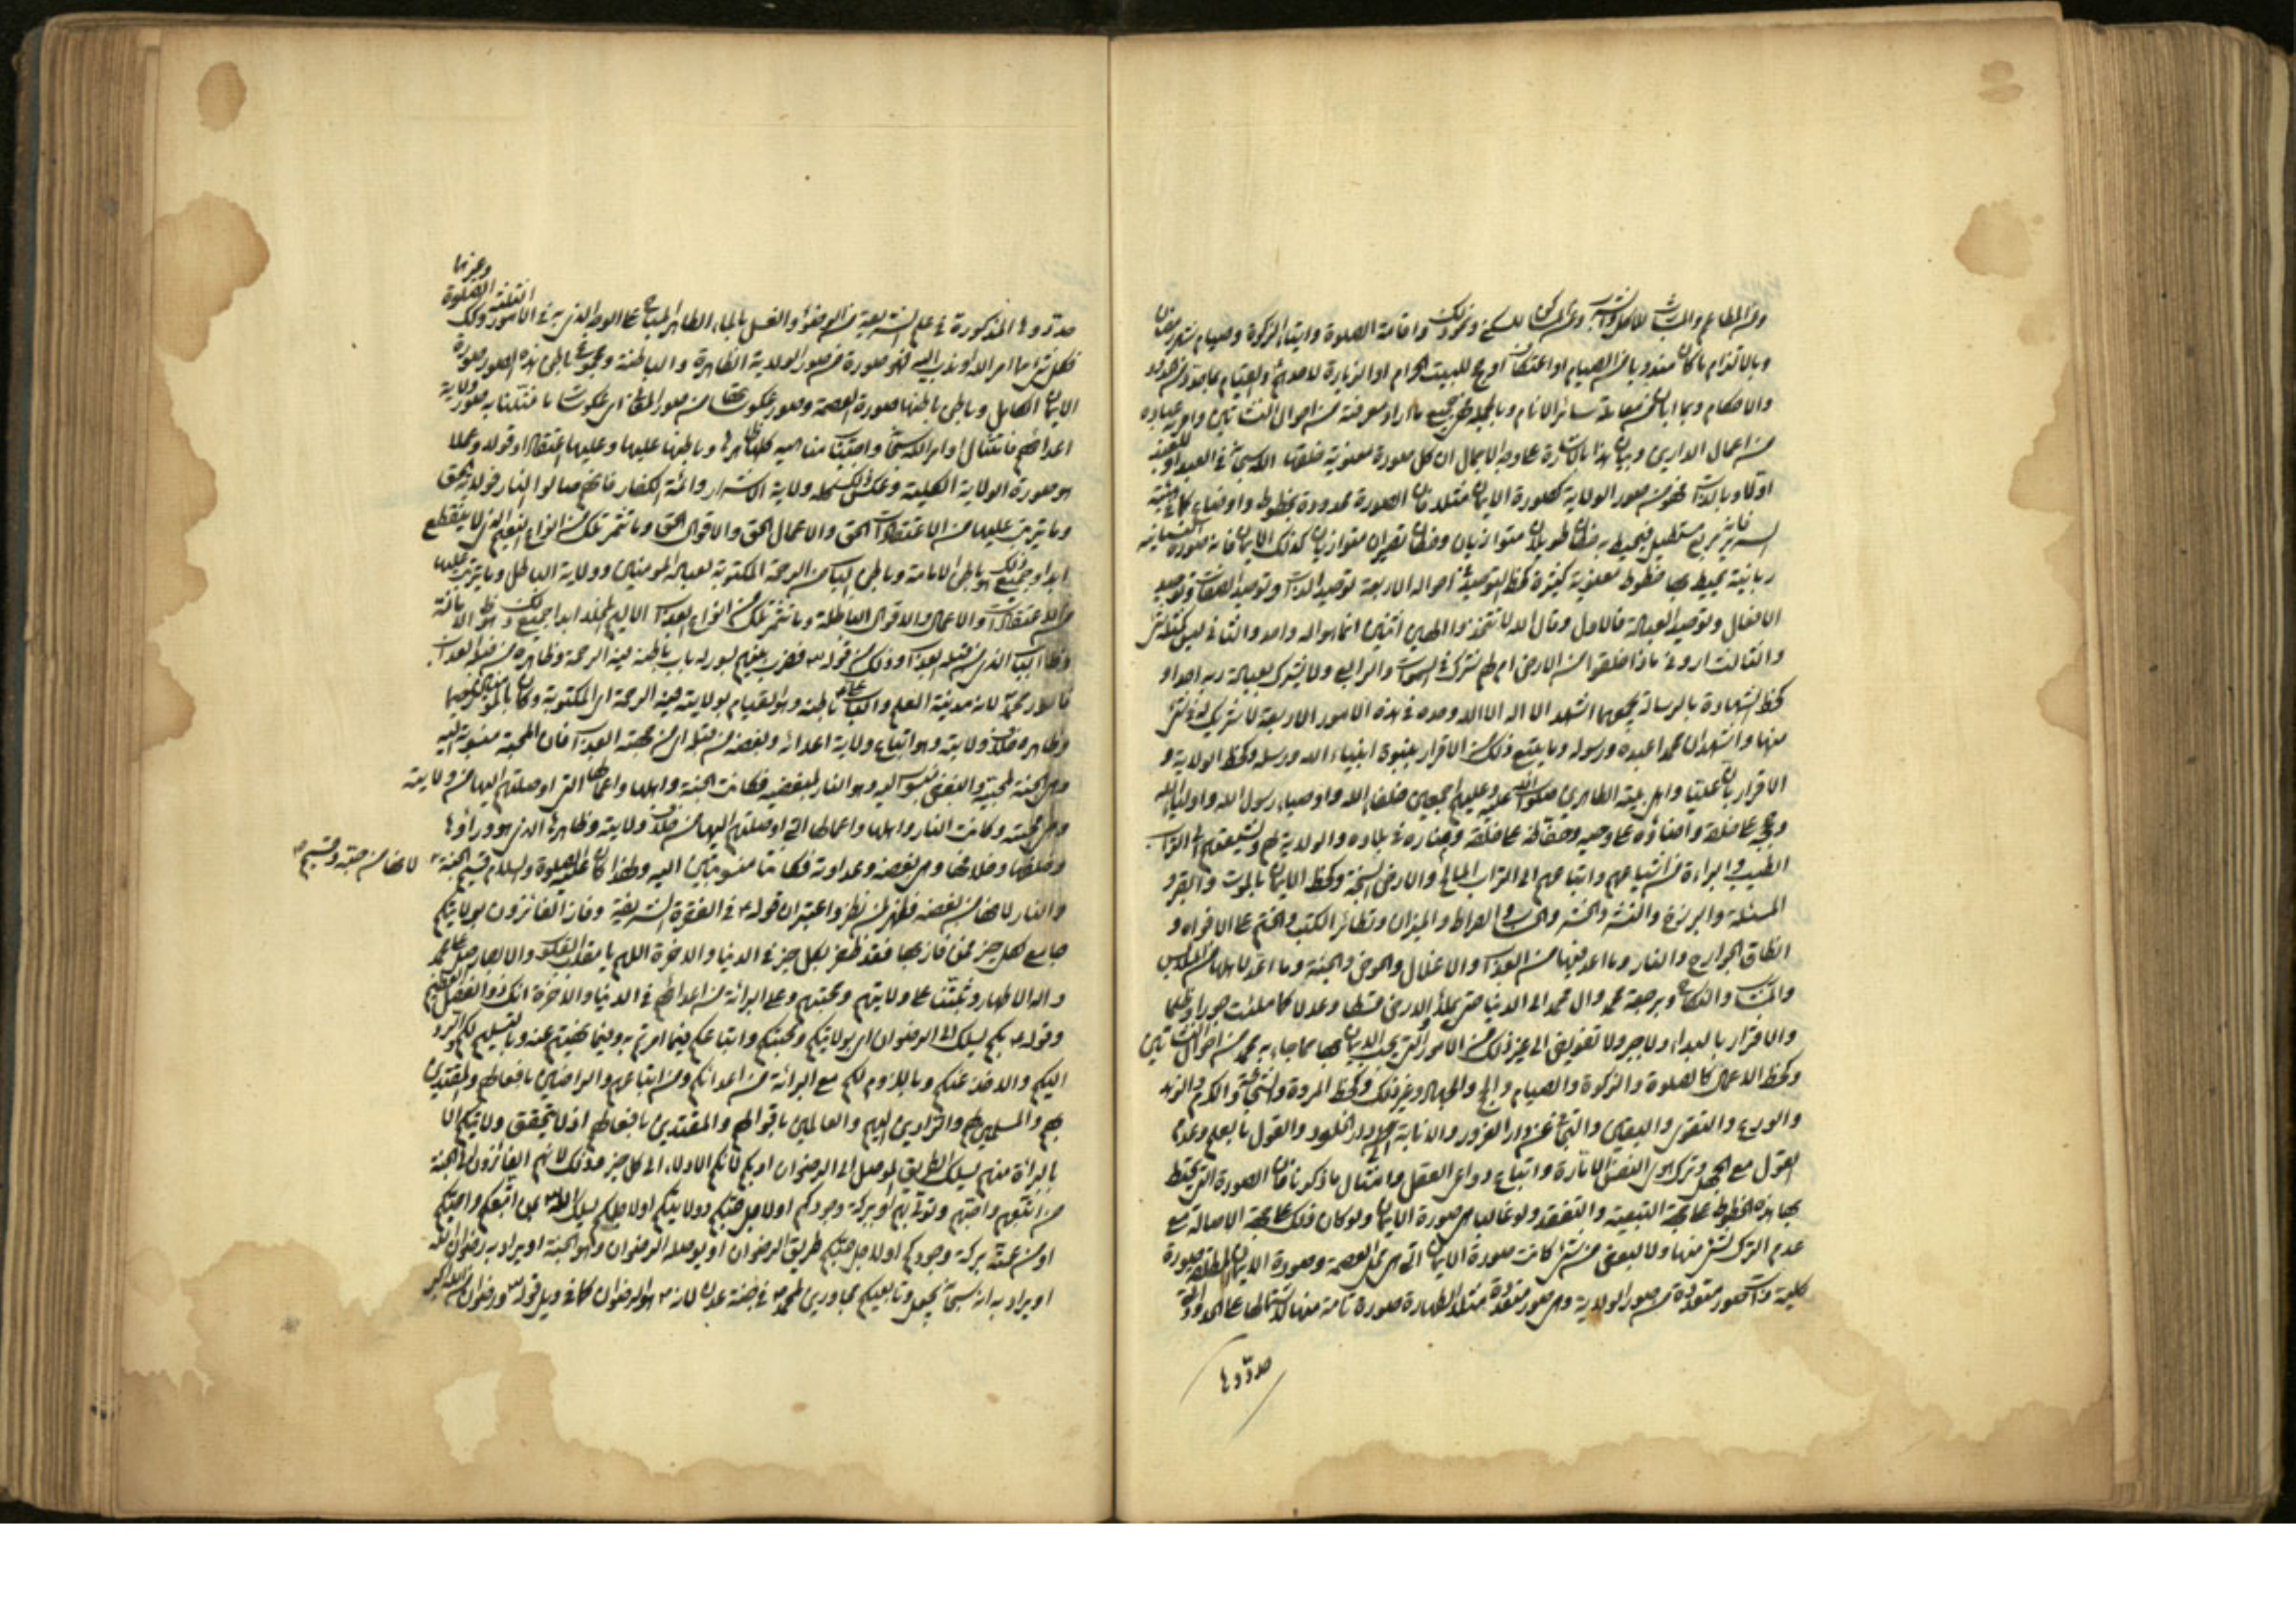 ومن المطاعم والمشارب للاكل والشرب ومن المساكن للسكنى ونحو ذلك واقامة الصلوة وايتاء الزكوة وصيام شهر رمضان
وبالالتزام ما كان مندوبا من الصيام او اعتكاف او حج للبيت الحرام او الزيارة
والاحكام وبما ابان من معاملة سائر الانام وبالجملة جميع ما اراد معرفته من احوال النشاتين وامر به عباده
من اعمال الدارين وبيان هذا بالاشارة على وجه الاجمال ان كل صورة معنوية خلقها الله سبحانه في العبد
اولا وبالذات فهو من صور الولاية كصورة الايمان مثلا فان الصورة محدودة بخطوط واوضاع كما في هيئة
السرير فانه مربع مستطيل يحيط به خطان طويلان متوازيان وخطان قصيران متوازيان كذلك الايمان فانه صورة
ربانية يحيط بها خطوط معنوية كثيرة كخط التوحيد في احواله الاربعة توحيد الذات وتوحيد الصفات وتوحيد
الافعال وتوحيد العبادة فالاول وقال الله لا تتخذوا الهين اثنين انما هو اله واحد والثاني ليس كمثله شئ
والثالث اروني ماذا خلقوا من الارض ام لهم شرك في السموات والرابع ولا يشرك بعبادة ربه احدا و
كخط الشهادة بالرسالة يجمعها اشهد ان لا اله الا الله وحده في هذه الامور الاربعة لا شريك له في شئ
منها واشهد ان محمدا عبده ورسوله وما يتبع ذلك من الاقرار بنبوة انبياء الله ورسله وكخط الولاية و
الاقرار بان عليا واهل بيته الطاهرين صلوات الله عليه وعليهم اجمعين خلفاء الله واوصياء رسول الله واولياء الله
وحججه على خلقه وامناؤه على وحيه وحفاظه على خلقه ومناره في بلاده والولاية لهم ولشيعتهم الى التراب
الطيب والبراءة من اشياعهم واتباعهم الى التراب المالح والارض السبخة وكخط الايمان بالموت والقبر و
المسئلة والبرزخ والنشر والحشر والحساب والصراط والميزان وتطائر الكتب والختم على الافواه و
انطاق الجوارح والنار وما اعد فيها من العذاب والاغلال والحوض والجنة وما اعد لاهلها من الملابس
والمشارب والنكاح وبرجعة محمد وال محمد الى الدنيا حتى يملأ الارض قسطا وعدلا كما ملئت جورا وظلما
والاقرار بالبداء ولا جبر ولا تفويض الى غير ذلك من الامور التي يجب الايمان بها مما جاء به محمد من احوال النشاتين
وكخط الاعمال كالصلوة والزكوة والصيام والحج والجهاد وغير ذلك وكخط المروة والشجاعة والكرم والزهد
والورع والتقوى واليقين والتجافي عن دار الغرور والانابة الى دار الخلود والقول بالعلم وعدم
القول مع الجهل وترك هوى النفس الامارة واتباع دواعي العقل وامتثال ما ذكرنا فان الصورة التي يحيط
بها هذه الخطوط على جهة التبعية والتفقد ولو غالبا هي صورة الايمان ولو كان ذلك على جهة الاصالة مع
عدم الترك لشئ منها ولا لبعض من شئ كانت صورة الايمان التي هي محل العصمة وصورة الايمان المطلق صورة
كلية ذات صور متعددة من صور الولاية وهي صور متعددة مثلا الطهارة صورة تامة منها لاشتمالها على
حدودها
وغيرها
حدودها المذكورة في علم الشريعة من الوضوء والغسل بالماء الطاهر المباح على الوجه الذي به في الامور
فكل شئ مما امر الله او ندب اليه فهو صورة من صور الولاية الظاهرة والباطنة ومجموع باطن هذه الصور صورة
الايمان الكامل وباطن باطنها صورة العصمة وصور عكوسها من صور المعاصي اي عكوسات ما مثلنا به صور ولاية
اعدائهم فامتثال اوامر الله سبحانه واجتناب مناهيه كلها ظاهرها وباطنها عليها وعليها اعتقادا وقولا وعملا
هو صورة الولاية الكلية وعكس ذلك كله ولاية الاشرار وائمة الكفار فانهم صالوا النار فولاية الحق
وما يترتب عليها من الاعتقادات الحق والاعمال الحق والاقوال الحق وما تثمر تلك من انواع النعيم الذي لا ينقطع
ابدا وجميع ذلك هو باطن الامامة وباطن الباب من الرحمة المكتوبة لعباده المؤمنين وولاية الباطل وما يترتب عليها
من الاعتقادات والاعمال والاقوال الباطلة وما تثمر تلك من انواع العذاب الاليم المخلد ابدا جميع ذلك
وظاهر الباب الذي من قبله العذاب وذلك من قوله تعالى فضرب بينهم بسور له باب باطنه فيه الرحمة وظاهره من قبله العذاب
فالسور محمد لانه مدينة العلم والباب علي باطنه وهو القيام بولايته فيه الرحمة اي المكتوبة وكان بالمؤمنين رحيما
وظاهره خلاف ولايته وهو اتباع ولاية اعدائه وبغضه من قبله اي من جهته العذاب فان المحبة منسوبة اليه
وهي الجنة لمحبيه والبغض منسوب اليه وهو النار لمبغضيه فكانت الجنة واهلها واعمالها التي اوصلتهم اليها من ولايته
ومن محبته وكانت النار واهلها واعمالها التي اوصلتهم اليها من خلاف ولايته وظاهرها الذي هو وراؤها
وخلفها وخلافها ومن بغضه وعداوته فكانتا منسوبتين اليه ولهذا كان عليه الصلوة والسلام قسيم الجنة
لانها من حبه وقسيم
والنار لانها من بغضه فظهر لمن نظر واعتبر ان قوله في الفقرة الشريفة وفاز الفائزون بولايتكم
جامع لكل خير فمن فاز بها فقد ظفر بكل خير في الدنيا والاخرة اللهم يا مقلب القلوب والابصار صل على محمد
واله الاطهار وثبتنا على ولايتهم ومحبتهم وعلى البرائة من اعدائهم في الدنيا والاخرة انك ذو الفضل العظيم
وقوله بكم يسلك الى الرضوان اي بولايتكم ومحبتكم واتباعكم فيما امرتم به وفيما نهيتم عنه وبالتسليم لكم والرد
اليكم والاخذ عنكم وباللزوم لكم مع البرائة من اعدائكم ومن اتباعهم والراضين بافعالهم والمقتدين
بهم والمسلمين لهم والرادين اليهم والعاملين باقوالهم والمقتدين بافعالهم اذ لا يتحقق ولايتكم الا
بالبراءة منهم يسلك الطريق الموصل الى الرضوان او بكم لانكم الادلاء الى كل خير
من اتبعهم واحبهم وتولاهم او ببركة وجودكم او لاجل حبكم وولايتكم او لاجلكم يسلك الله بمن اتبعكم واحبكم
او من عنده ببركة وجودكم او لاجل حبكم طريق الرضوان او يوصله الرضوان وهو الجنة او يراد به رضوان الله
او يراد به انه سبحانه يجعل تابعيكم مجاورين لمحمد في جنة عدن لانه هو الرضوان كما في تاويل قوله ورضوان من الله اكبر